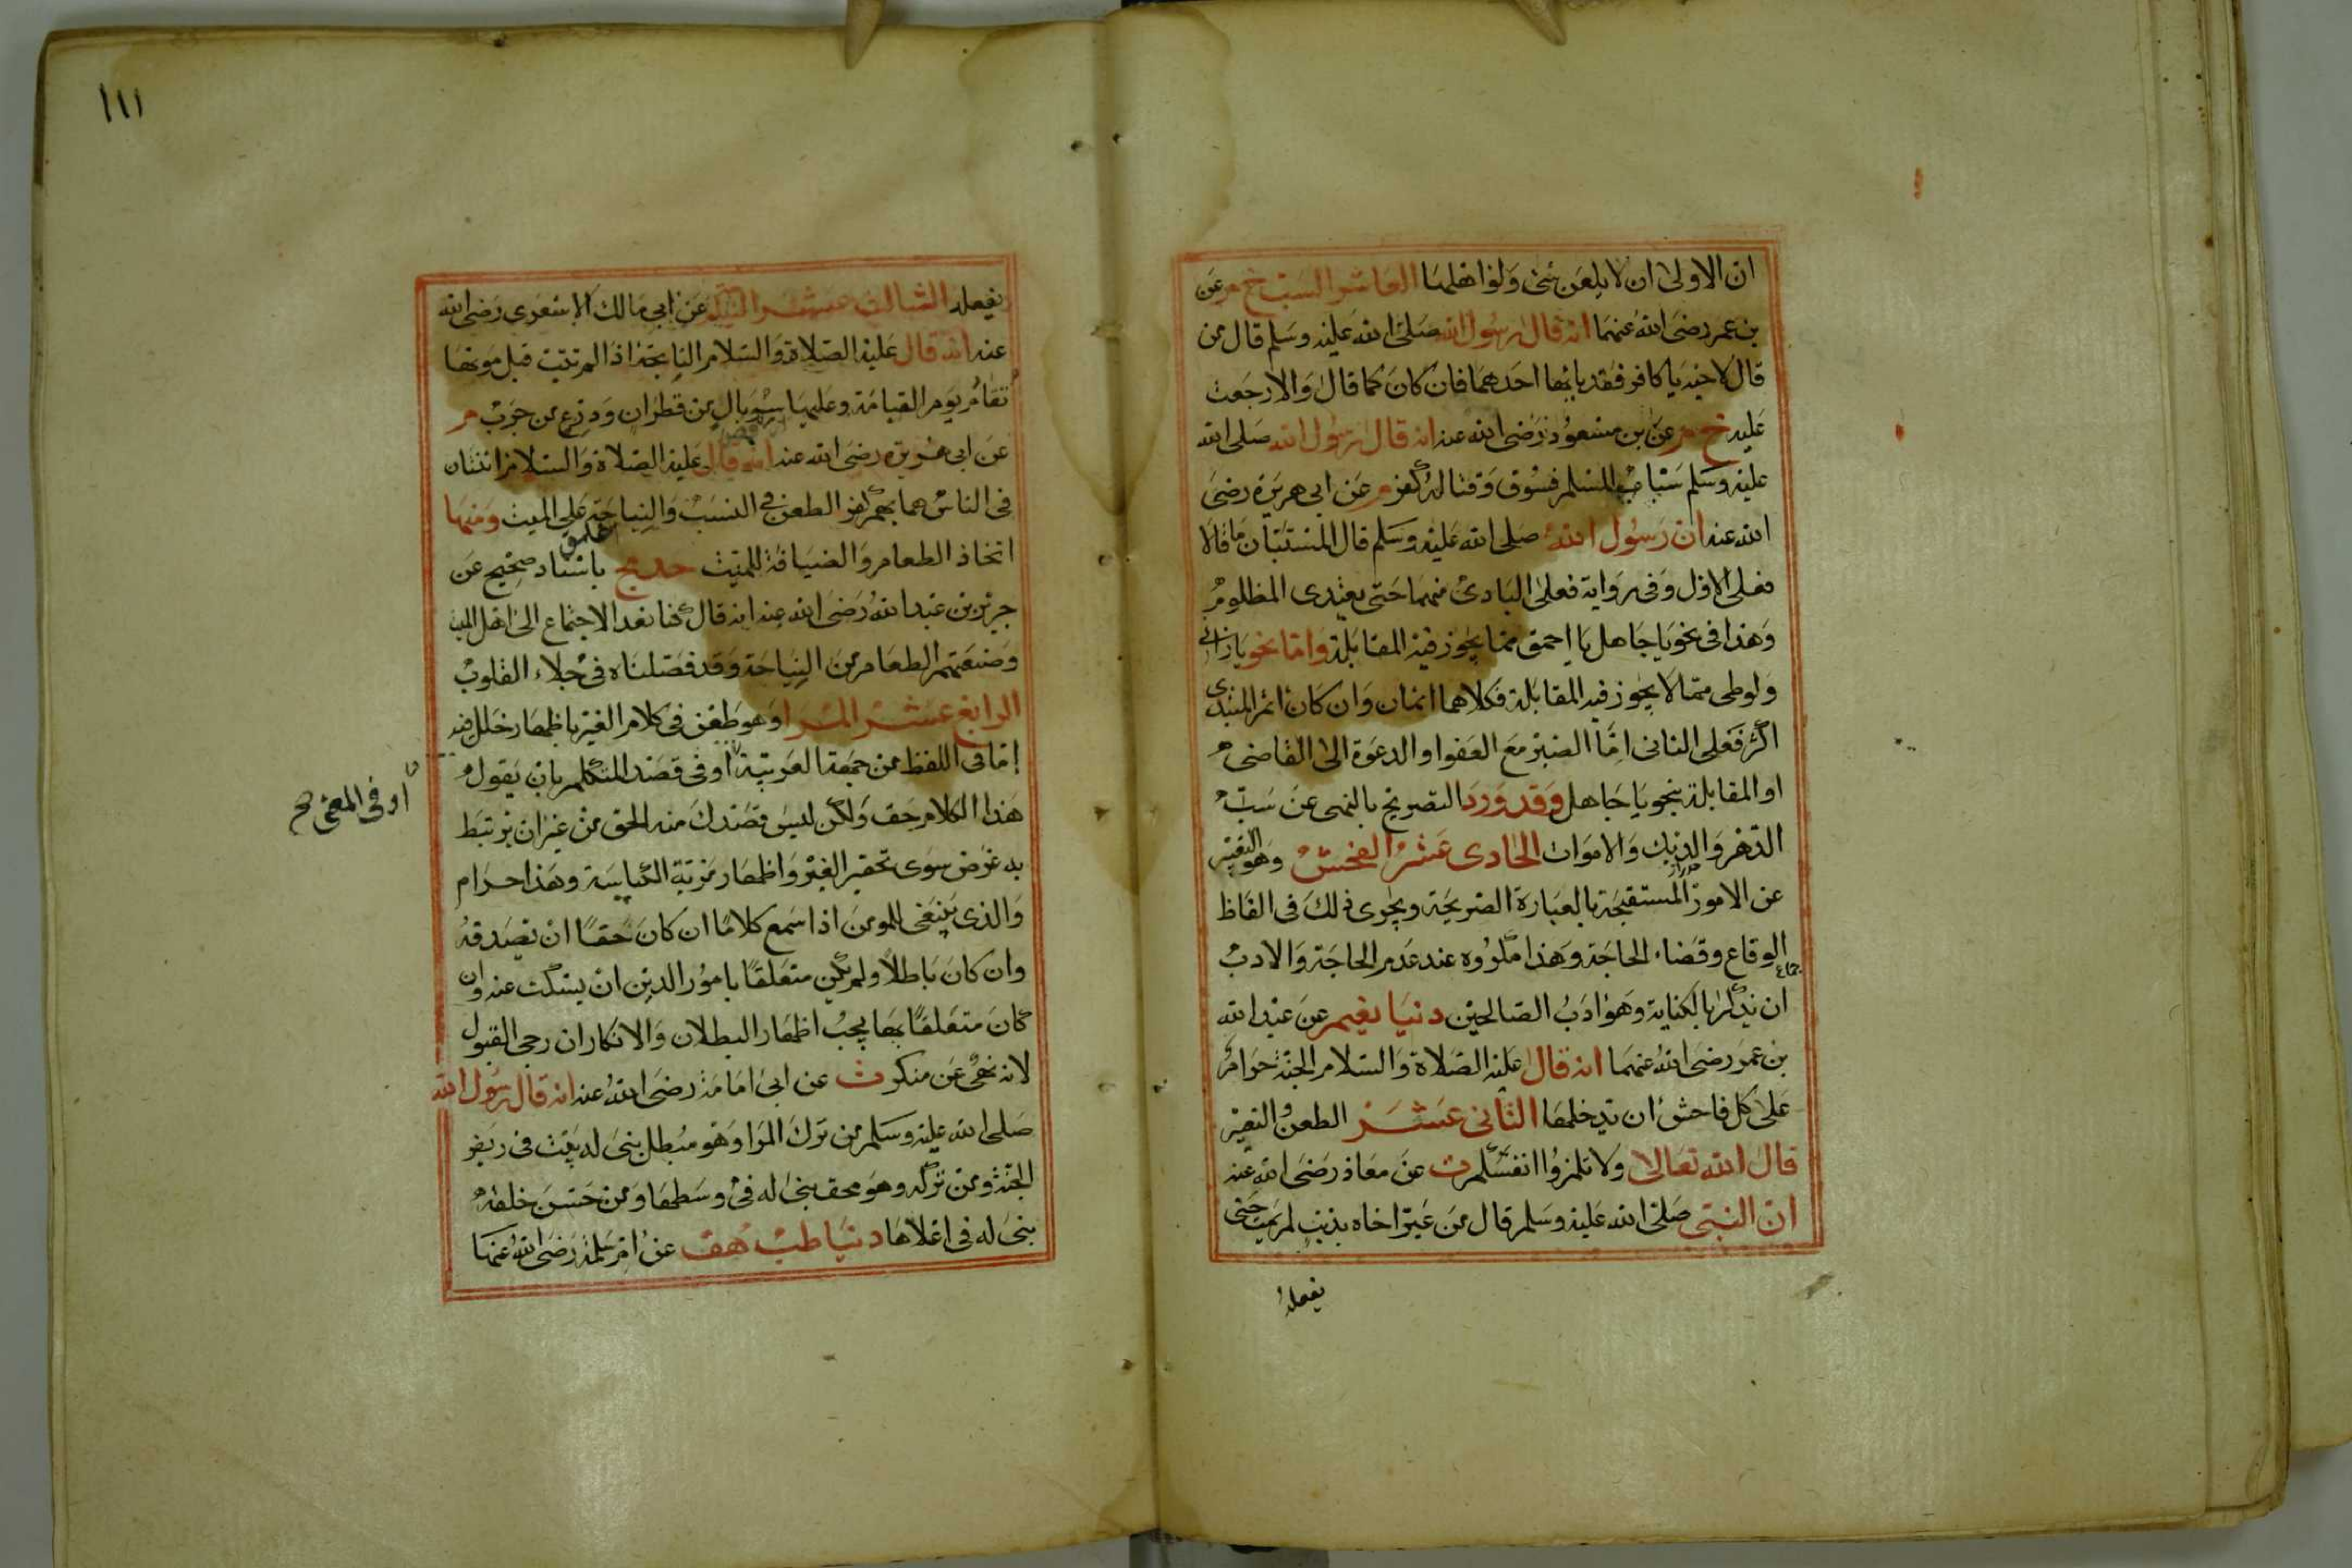 ان الاولى ان لا يلعن شئ ولو اهلها العاشر السب خ م عن
بن عمر رضى الله عنهما انه قال رسول الله صلى الله عليه وسلم قال من
قال لاخيه يا كافر فقد باء بها احدهما فان كان كما قال والا رجعت
عليه خ م عن بن مسعود رضى الله عنه انه قال رسول الله صلى الله
عليه وسلم سباب المسلم فسوق وقتاله كفر م عن ابى هريرة رضى
الله عنه ان رسول الله صلى الله عليه وسلم قال المستبان ما قالا
فعلى الاول وفى رواية فعلى البادئ منهما حتى يعتدى المظلوم
وهذا فى نحو يا جاهل يا احمق مما يجوز فيه المقابلة واما نحو يا زانى
ولوطى مما لا يجوز فيه المقابلة فكلاهما اثمان وان كان اثم المبتدى
اكثر فعلى الثانى اما الصبر مع العفو او الدعوة الى القاضى
او المقابلة بنحو يا جاهل وقد ورد التصريح بالنهى عن سب
الدهر والديك والاموات الحادى عشر الفحش وهو التعبير
عن الامور المستقبحة بالعبارة الصريحة ويجرى ذلك فى الفاظ
الوقاع وقضاء الحاجة وهذا مكروه عند عدم الحاجة والادب
جماع
ان يذكر بالكناية وهو ادب الصالحين دنيا نعيم عن عبد الله
بن عمر رضى الله عنهما انه قال عليه الصلاة والسلام الجنة حرام
على كل فاحش ان يدخلها الثانى عشر الطعن والتعيير
قال الله تعالى ولا تلمزوا انفسكم ت عن معاذ رضى الله عنه
ان النبى صلى الله عليه وسلم قال من عير اخاه بذنب لم يمت حتى
يفعله
١١١
يفعله الثالث عشر النياحة م عن ابى مالك الاشعرى رضى الله
عنه انه قال عليه الصلاة والسلام النايحة اذا لم تتب قبل موتها
تقام يوم القيامة وعليها سربال من قطران ودرع من جرب م
عن ابى هريرة رضى الله عنه انه قال عليه الصلاة والسلام اثنتان
فى الناس هما بهم كفر الطعن فى النسب والنياحة على الميت ومنها
اتخاذ الطعام والضيافة للميت حد مج باسناد صحيح عن
جرير بن عبد الله رضى الله عنه انه قال كنا نعد الاجتماع الى اهل الميت
وصنعتهم الطعام من النياحة وقد فصلناه فى جلاء القلوب
الرابع عشر المرا وهو طعن فى كلام الغير باظهار خلل فيه
اما فى اللفظ من جهة العربية او فى قصد المتكلم بان يقول
او فى المعنى صح
هذا الكلام حق ولكن ليس قصدك منه الحق من غير ان يرتبط
به غرض سوى تحقير الغير واظهار مزية الكياسة وهذا حرام
والذى ينبغى للمومن اذا سمع كلاما ان كان حقا ان يصدقه
وان كان باطلا ولم يكن متعلقا بامور الدين ان يسكت عنه وان
كان متعلقا بها يجب اظهار البطلان والانكار ان رجى القبول
لانه نهى عن منكر ت عن ابى امامة رضى الله عنه انه قال رسول الله
صلى الله عليه وسلم من ترك المرا وهو مبطل بنى له بيت فى ربض
الجنة ومن تركه وهو محق بنى له فى وسطها ومن حسن خلقه
بنى له فى اعلاها دنيا طب هق عن ام سلمة رضى الله عنها